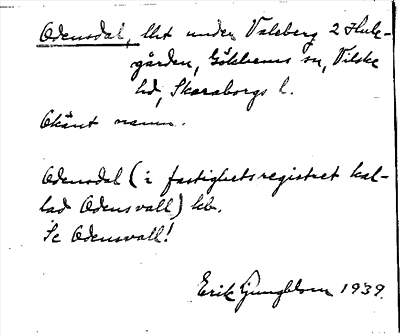 Odensdal, lht under Valeberg 2 Stule-
gården, Gökhems sn, Vilske
hd, Skaraborgs l.
Okänt namn.
Odensdal (i fastighetsregistret kal-
lad Odensvall) hb.
Se Odensvall!
Erik Ljungblom 1939.